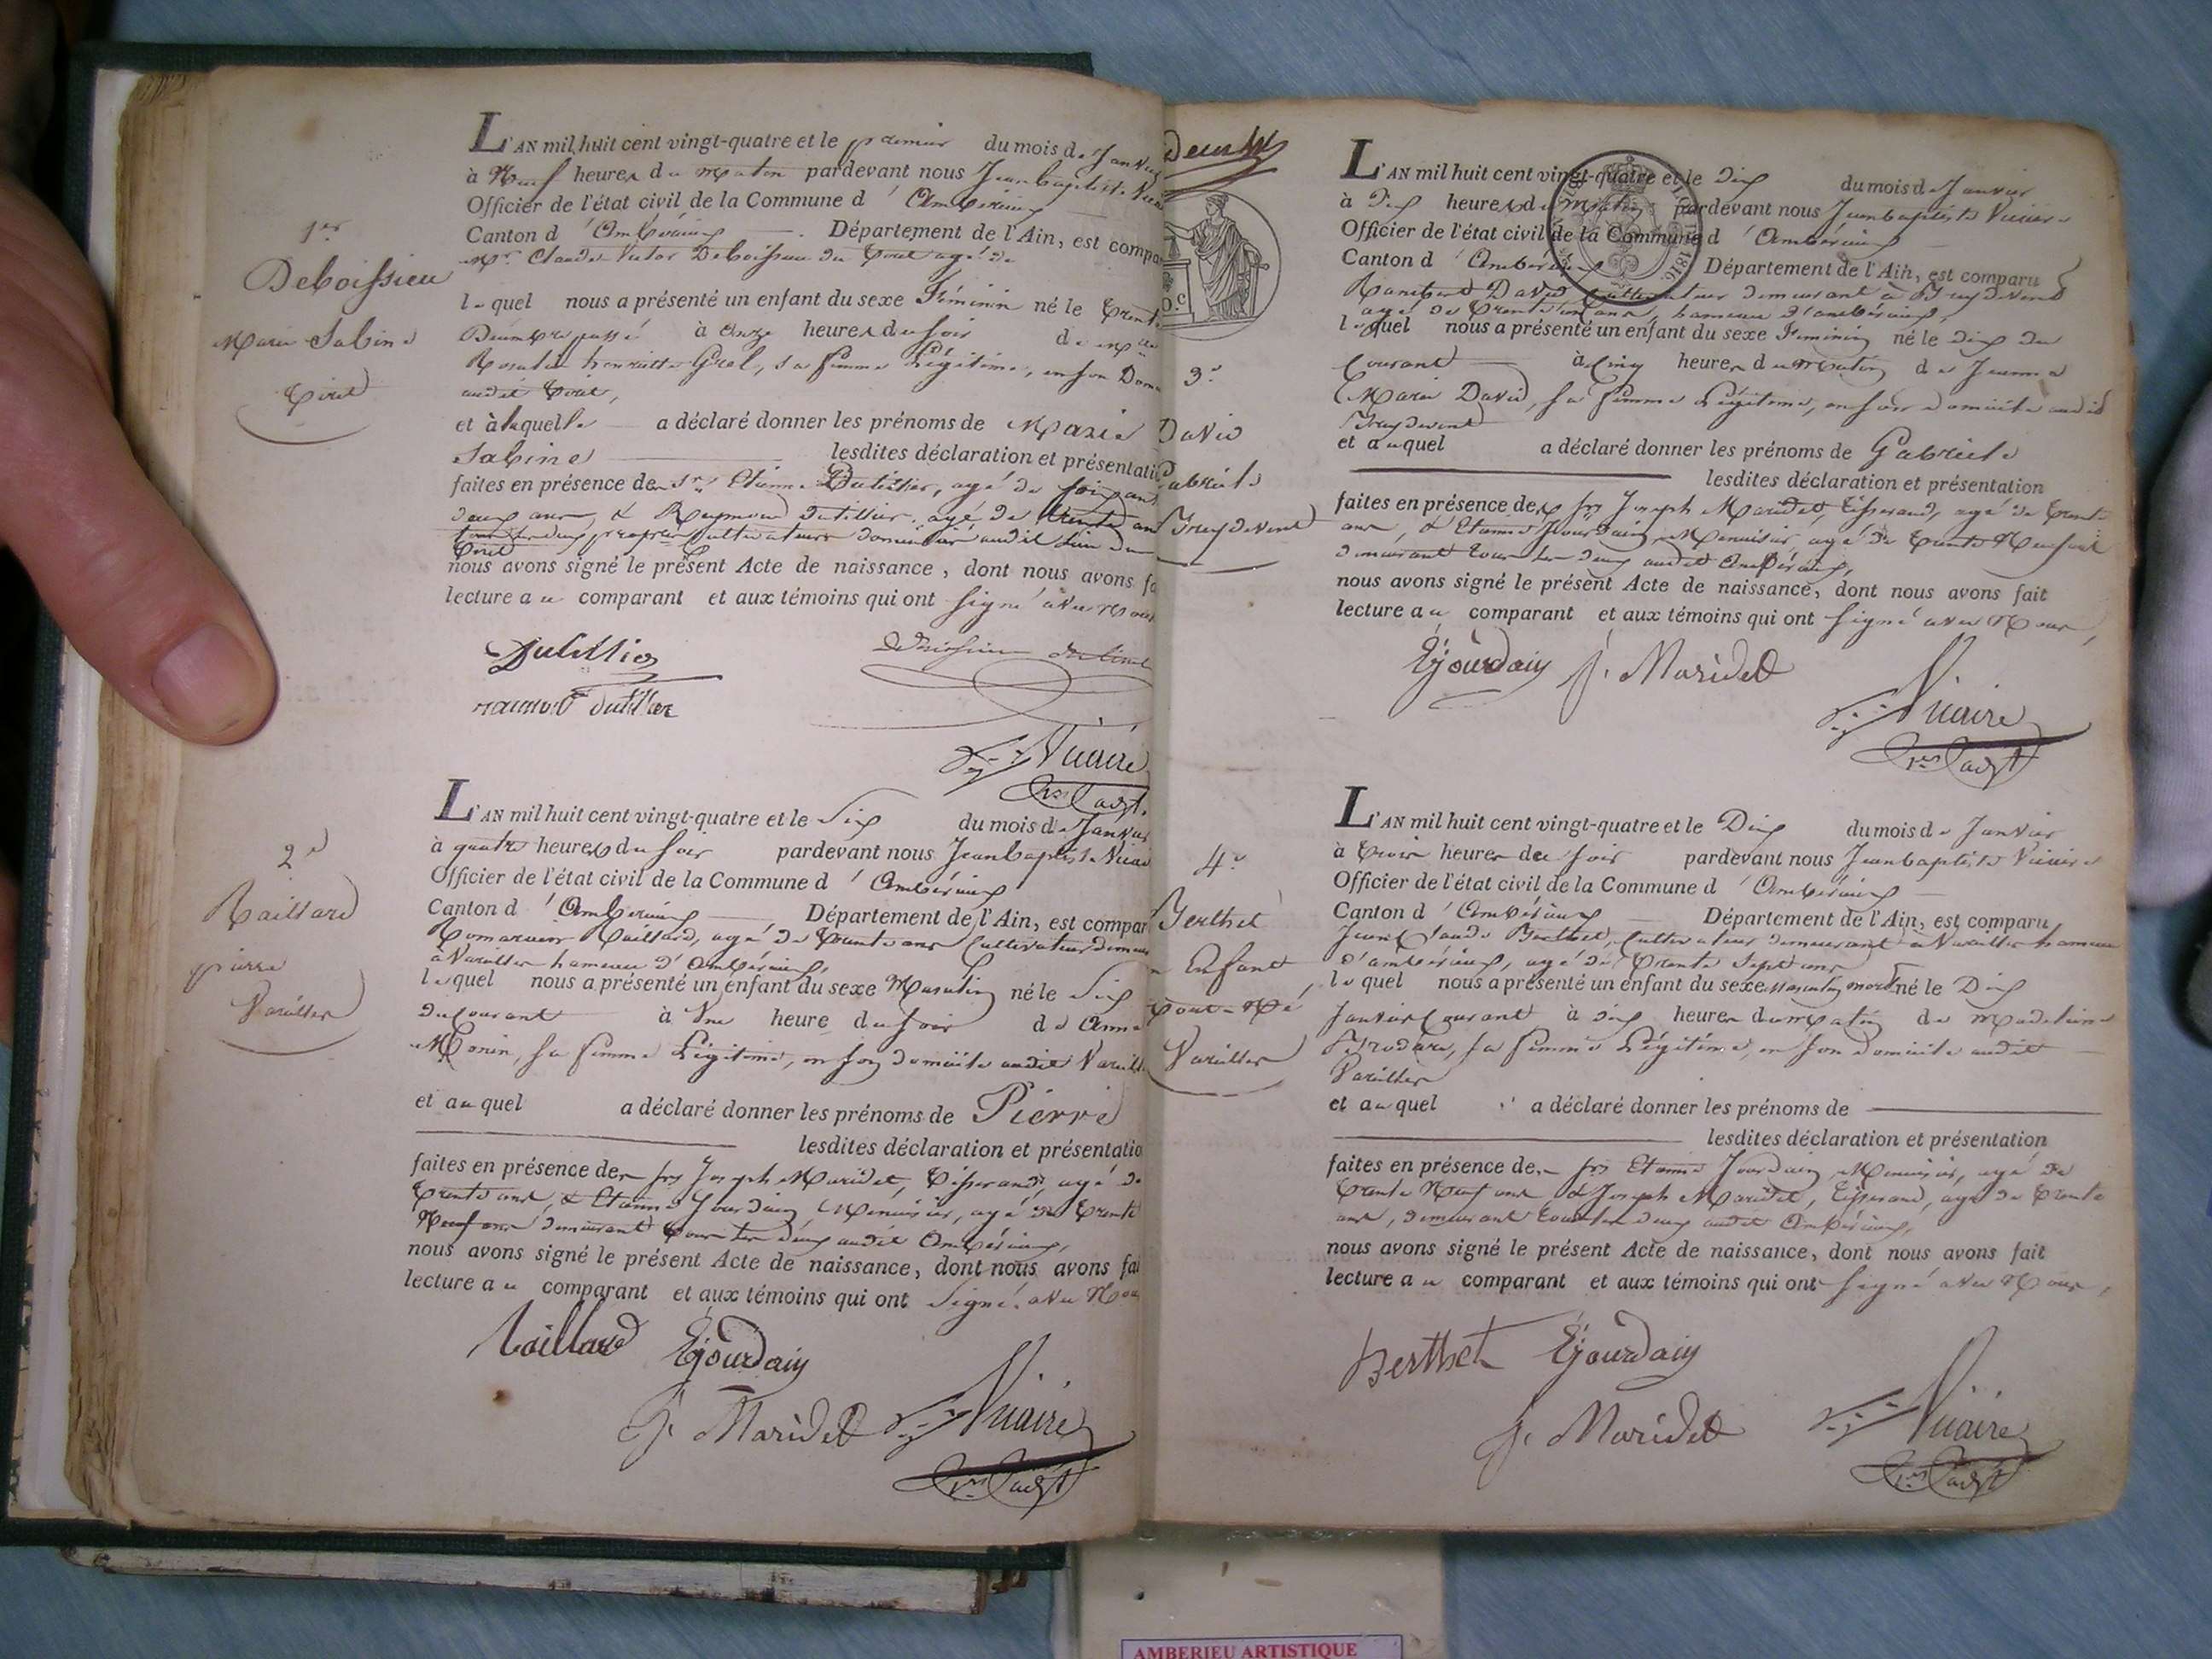 1er
Deboissieu
Marie Sabine
Tiret
L'AN mil huit cent vingt-quatre et le premier du mois de Janvier
à Neuf heures du matin pardevant nous Jean baptiste
Officier de l'état civil de la Commune d'Ambérieux
Canton d'Ambérieux Département de l'Ain, est compa
Mr Claude Victor Deboissieu du Tiret agé de
lequel nous a présenté un enfant du sexe Féminin né le trente
Décembre passé à onze heures du soir de
henriette Grel, sa femme Légitime, en son Dom
audit Tiret,
et à laquelle a déclaré donner les prénoms de Marie
Sabine lesdites déclaration et présentati
faites en présence des Srs Etienne Dutillier, agé de soixante
deux ans, & Raymond Dutillier, agé de trente ans
tous les deux propres Cultivateurs audit lieu du
Tiret
nous avons signé le présent Acte de naissance, dont nous avons fa
lecture au comparant et aux témoins qui ont signé avec nous
Dutillier
raimond dutillier
Vicaire
2e
Raillard
pierre
Vareilles
L'AN mil huit cent vingt-quatre et le Six du mois de Janvier
à quatre heures du soir pardevant nous Jean baptiste Vicai
Officier de l'état civil de la Commune d'Ambérieux
Canton d'Ambérieux Département de l'Ain, est compar
Raillard, agé de trente ans Cultivateur demeu
à Vareilles hameau d'Ambérieux,
lequel nous a présenté un enfant du sexe Masculin né le Six
du Courant à Une heure du soir de Anne
Monin, sa femme Légitime, en son domicile audit Vareill
et auquel a déclaré donner les prénoms de Pierre
lesdites déclaration et présentatio
faites en présence des Srs Joseph Maridet, Tisserand, agé de
trente ans, & Etienne Jourdain, Menuisier, agé de trente
Neuf ans demeurant tous les deux audit Ambérieux,
nous avons signé le présent Acte de naissance, dont nous avons fai
lecture au comparant et aux témoins qui ont signé avec Nou
Raillard EJourdain
J. Maridet Vicaire
3e
David
Gabriele
L'AN mil huit cent vingt-quatre et le Dix du mois de Janvier
à Dix heures du matin pardevant nous Jean baptiste Vicaire
Officier de l'état civil de la Commune d'Ambérieux
Canton d'Ambérieux Département de l'Ain, est comparu
1816
Rambert David Cultivateur demeurant à
agé de trente un ans, hameau d'ambérieux,
lequel nous a présenté un enfant du sexe Feminin né le dix du
Courant à Cinq heures du Matin de Jeanne
Marie David, sa femme Légitime, en son domicile audit
et auquel a déclaré donner les prénoms de Gabriele
lesdites déclaration et présentation
faites en présence des Srs Joseph Maridet, Tisserand, agé de trente
ans, & Etienne Jourdain, Menuisier, agé de trente Neuf ans
demeurant tous les deux audit Ambérieux,
nous avons signé le présent Acte de naissance, dont nous avons fait
lecture au comparant et aux témoins qui ont signé avec Nous,
EJourdain J. Maridet
Vicaire
4e
Berthet
Enfant
mort-Né
Vareilles
L'AN mil huit cent vingt-quatre et le Dix du mois de Janvier
à trois heures du soir pardevant nous Jean baptiste Vicaire
Officier de l'état civil de la Commune d'Ambérieux
Canton d'Ambérieux Département de l'Ain, est comparu
Jean Claude Berthet, Cultivateur demeurant à Vareilles hameau
d'ambérieux, agé de trente sept ans
lequel nous a présenté un enfant du sexe Masculin mort né le Dix
Janvier Courant à six heures du matin de Madelaine
sa femme Légitime, en son domicile audit
Vareilles
et auquel a déclaré donner les prénoms de
lesdites déclaration et présentation
faites en présence des Srs Etienne Jourdain, Menuisier, agé de
trente Neuf ans & Joseph Maridet, Tisserand, agé de trente
ans, demeurant tous les deux audit Ambérieux,
nous avons signé le présent Acte de naissance, dont nous avons fait
lecture au comparant et aux témoins qui ont signé avec Nous,
Berthet EJourdain
J. Maridet Vicaire
AMBERIEU ARTISTIQUE